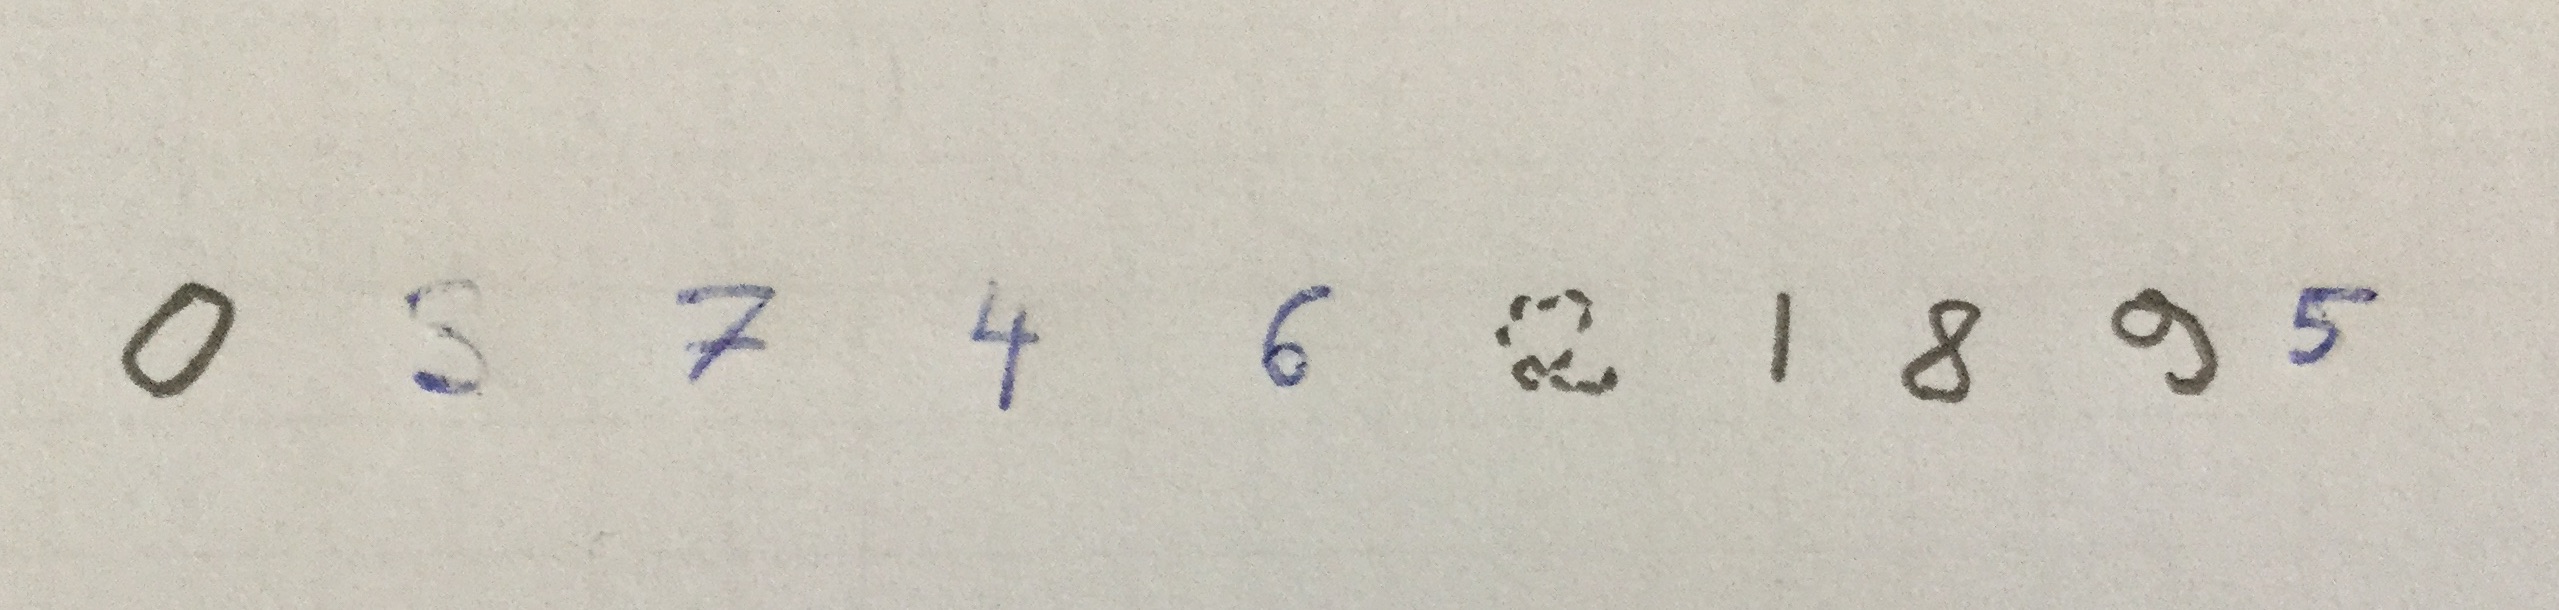 0 3 7 4 6 2 1 8 9 5